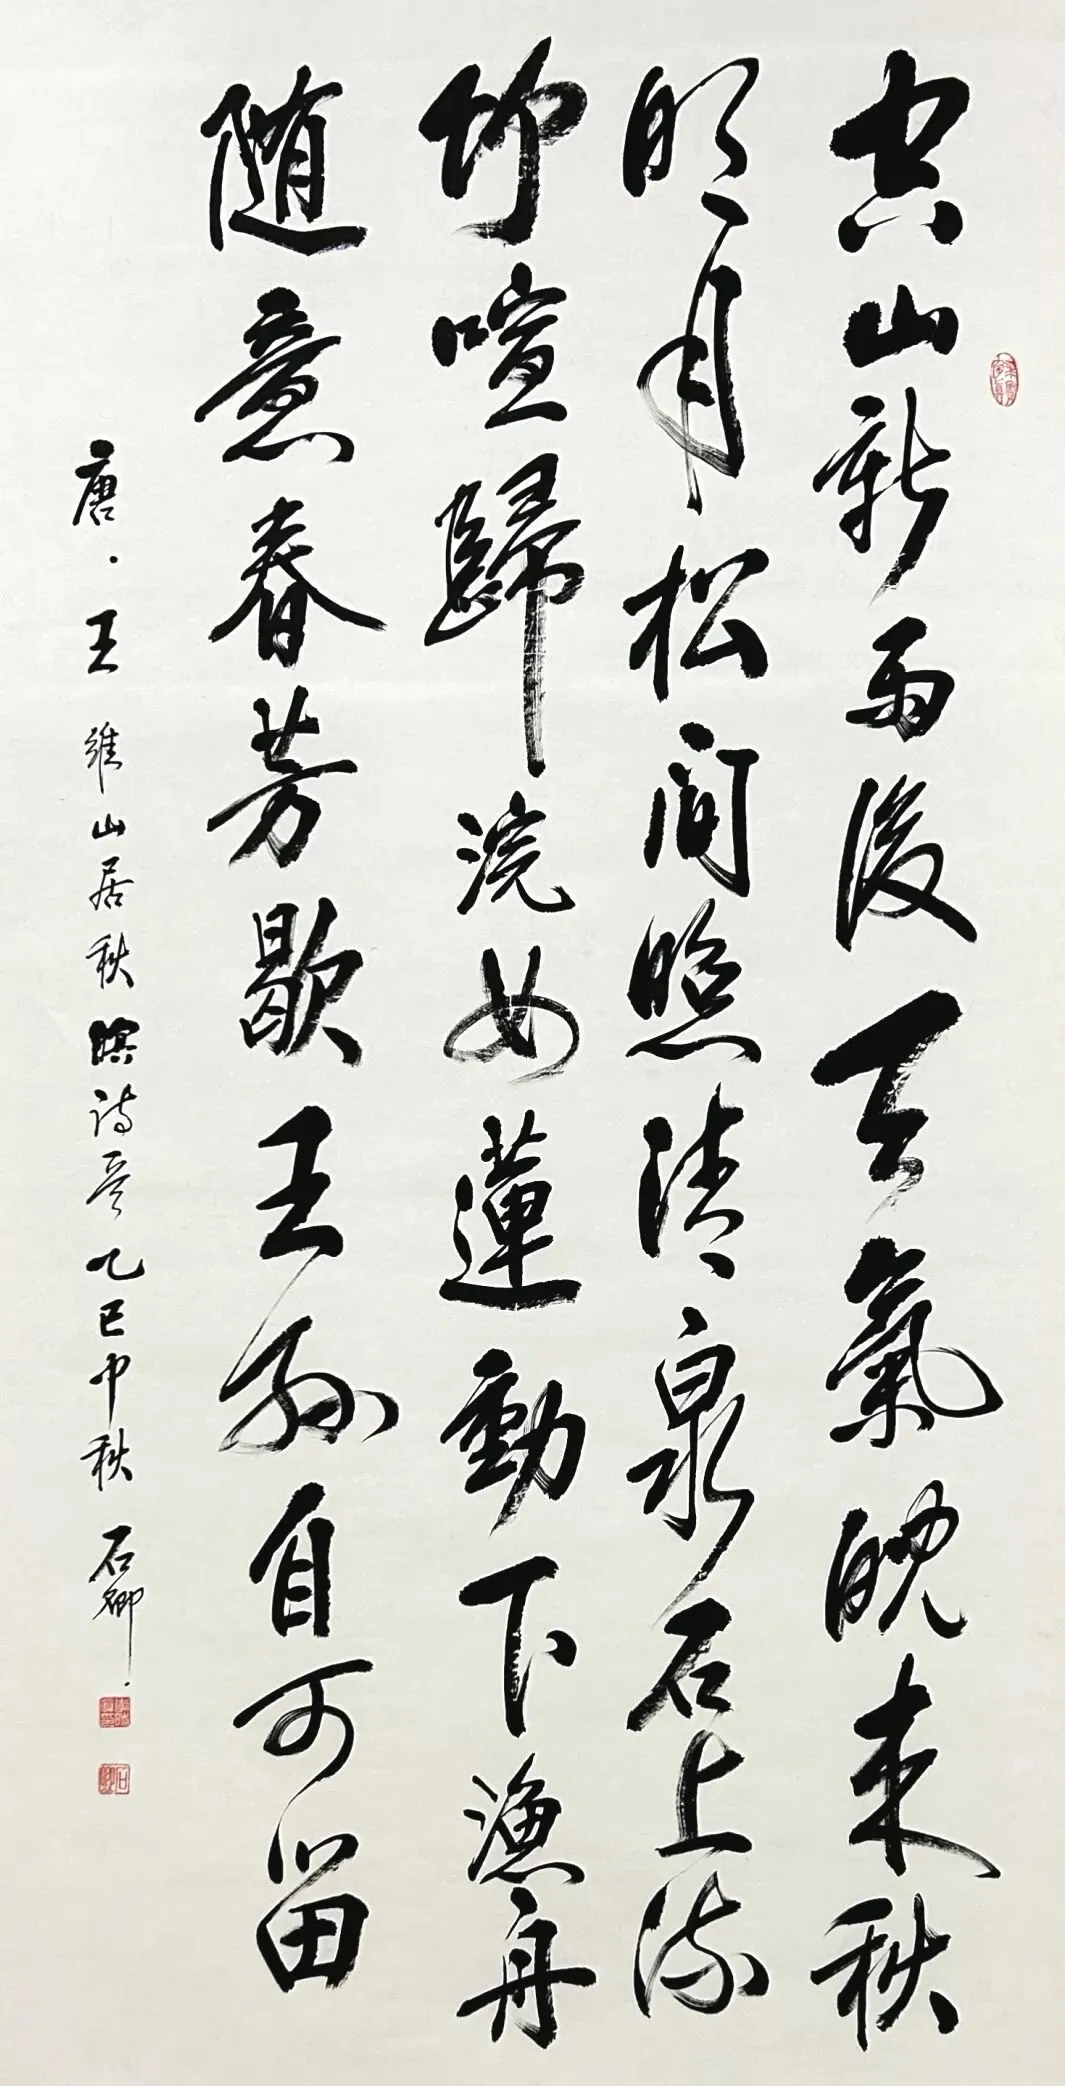 空山新雨後天氣晚来秋
明月松间照清泉石上流
竹喧歸浣女蓮動下渔舟
随意春芳歇王孙自可留
唐·王維山居秋暝诗意乙巳中秋石卿